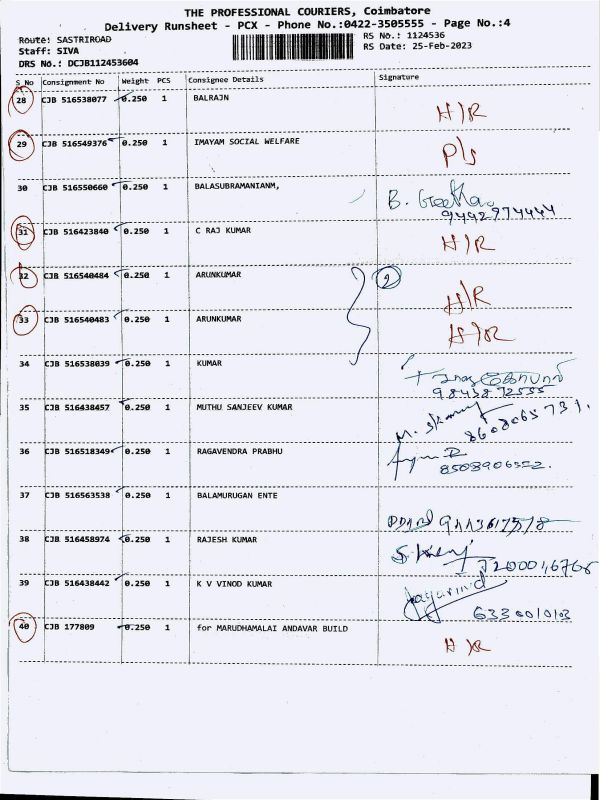 THE PROFESSIONAL COURIERS, Coimbatore
Delivery Runsheet - PCX - Phone No.:0422-3505555 - Page No.:4
Route: SASTRIROAD
RS No.: 1124536
Staff: SIVA
RS Date: 25-Feb-2023
DRS No.: DCJB112453604
S No Consignment No Weight PCS Consignee Details Signature
28 CJB 516538077 0.250 1 BALRAJN H/R
29 CJB 516549376 0.250 1 IMAYAM SOCIAL WELFARE P/s
30 CJB 516550660 0.250 1 BALASUBRAMANIANM, B. Geetha
31 CJB 516423840 0.250 1 C RAJ KUMAR H/R
32 CJB 516540484 0.250 1 ARUNKUMAR 2 H/R
33 CJB 516540483 0.250 1 ARUNKUMAR H/R
34 CJB 516538039 0.250 1 KUMAR
35 CJB 516438457 0.250 1 MUTHU SANJEEV KUMAR
8608065731.
36 CJB 516518349 0.250 1 RAGAVENDRA PRABHU
8508906552.
37 CJB 516563538 0.250 1 BALAMURUGAN ENTE
38 CJB 516458974 0.250 1 RAJESH KUMAR
39 CJB 516438442 0.250 1 K V VINOD KUMAR
40 CJB 177809 0.250 1 for MARUDHAMALAI ANDAVAR BUILD H/R